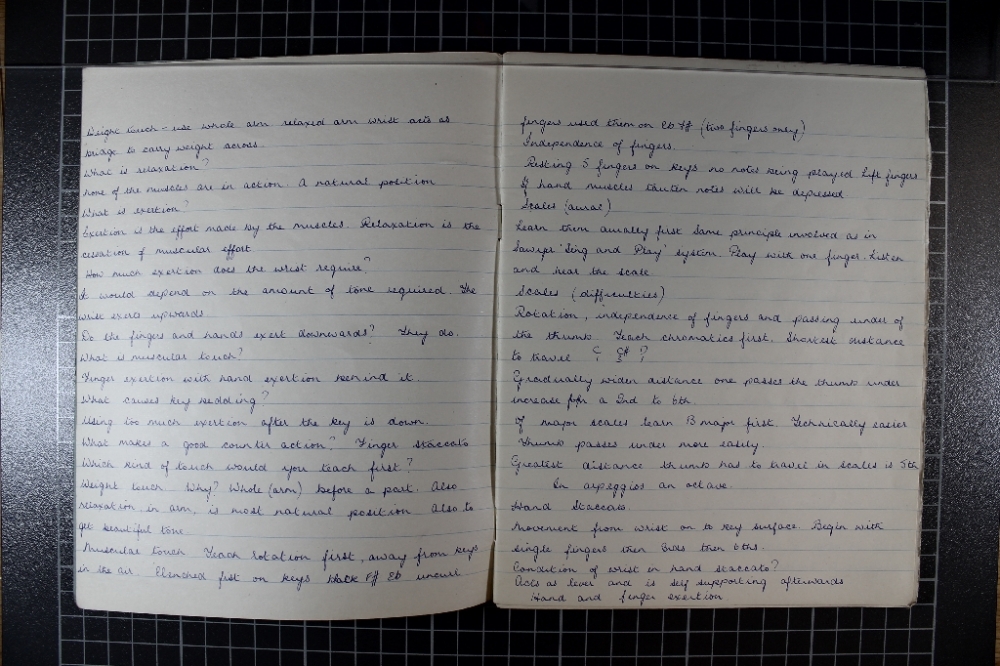 Weight touch - use whole arm relaxed arm wrist acts as
bridge to carry weight across.
What is relaxation?
None of the muscles are in action. A natural position
What is exertion?
Exertion is the effort made by the muscles. Relaxation is the
cessation of muscular effort
How much exertion does the wrist require?
It would depend on the amount of tone required. The
wrist exerts upwards.
Do the fingers and hands exert downwards? They do.
What is muscular touch?
Finger exertion with hand exertion behind it.
What causes key bedding?
Using too much exertion after the key is down.
What makes a good counter action? Finger staccato
Which kind of touch would you teach first?
Weight touch. Why? Whole (arm) before a part. Also
relaxation in arm, is most natural position Also to
get beautiful tone
Muscular touch Teach rotation first, away from keys
in the air. Clenched fist on keys F# Eb uncurl
fingers used them on Eb F# (two fingers only)
Independence of fingers.
Resting 5 fingers on keys no notes being played. Lift fingers
If hand muscles tauten notes will be depressed
Scales (aural)
Learn them aurally first Same principle involved as in
Sawyer 'Sing and Play' system. Play with one finger. Listen
and hear the scale.
Scales (difficulties)
Rotation, independence of fingers and passing under of
the thumb. Teach chromatics first. Shortest distance
to travel C C# ?
Gradually widen distance one passes the thumb under
increase from a 2nd to 6th.
Of major scales learn B major first. Technically easier
thumb passes under more easily.
Greatest distance thumb has to travel in scales is 5th
In arpeggios an octave.
Hand Staccato.
Movement from wrist on to key surface. Begin with
single fingers then 3rds then 6ths.
Condition of wrist in hand staccato?
Acts as lever and is self supporting afterwards
Hand and finger exertion